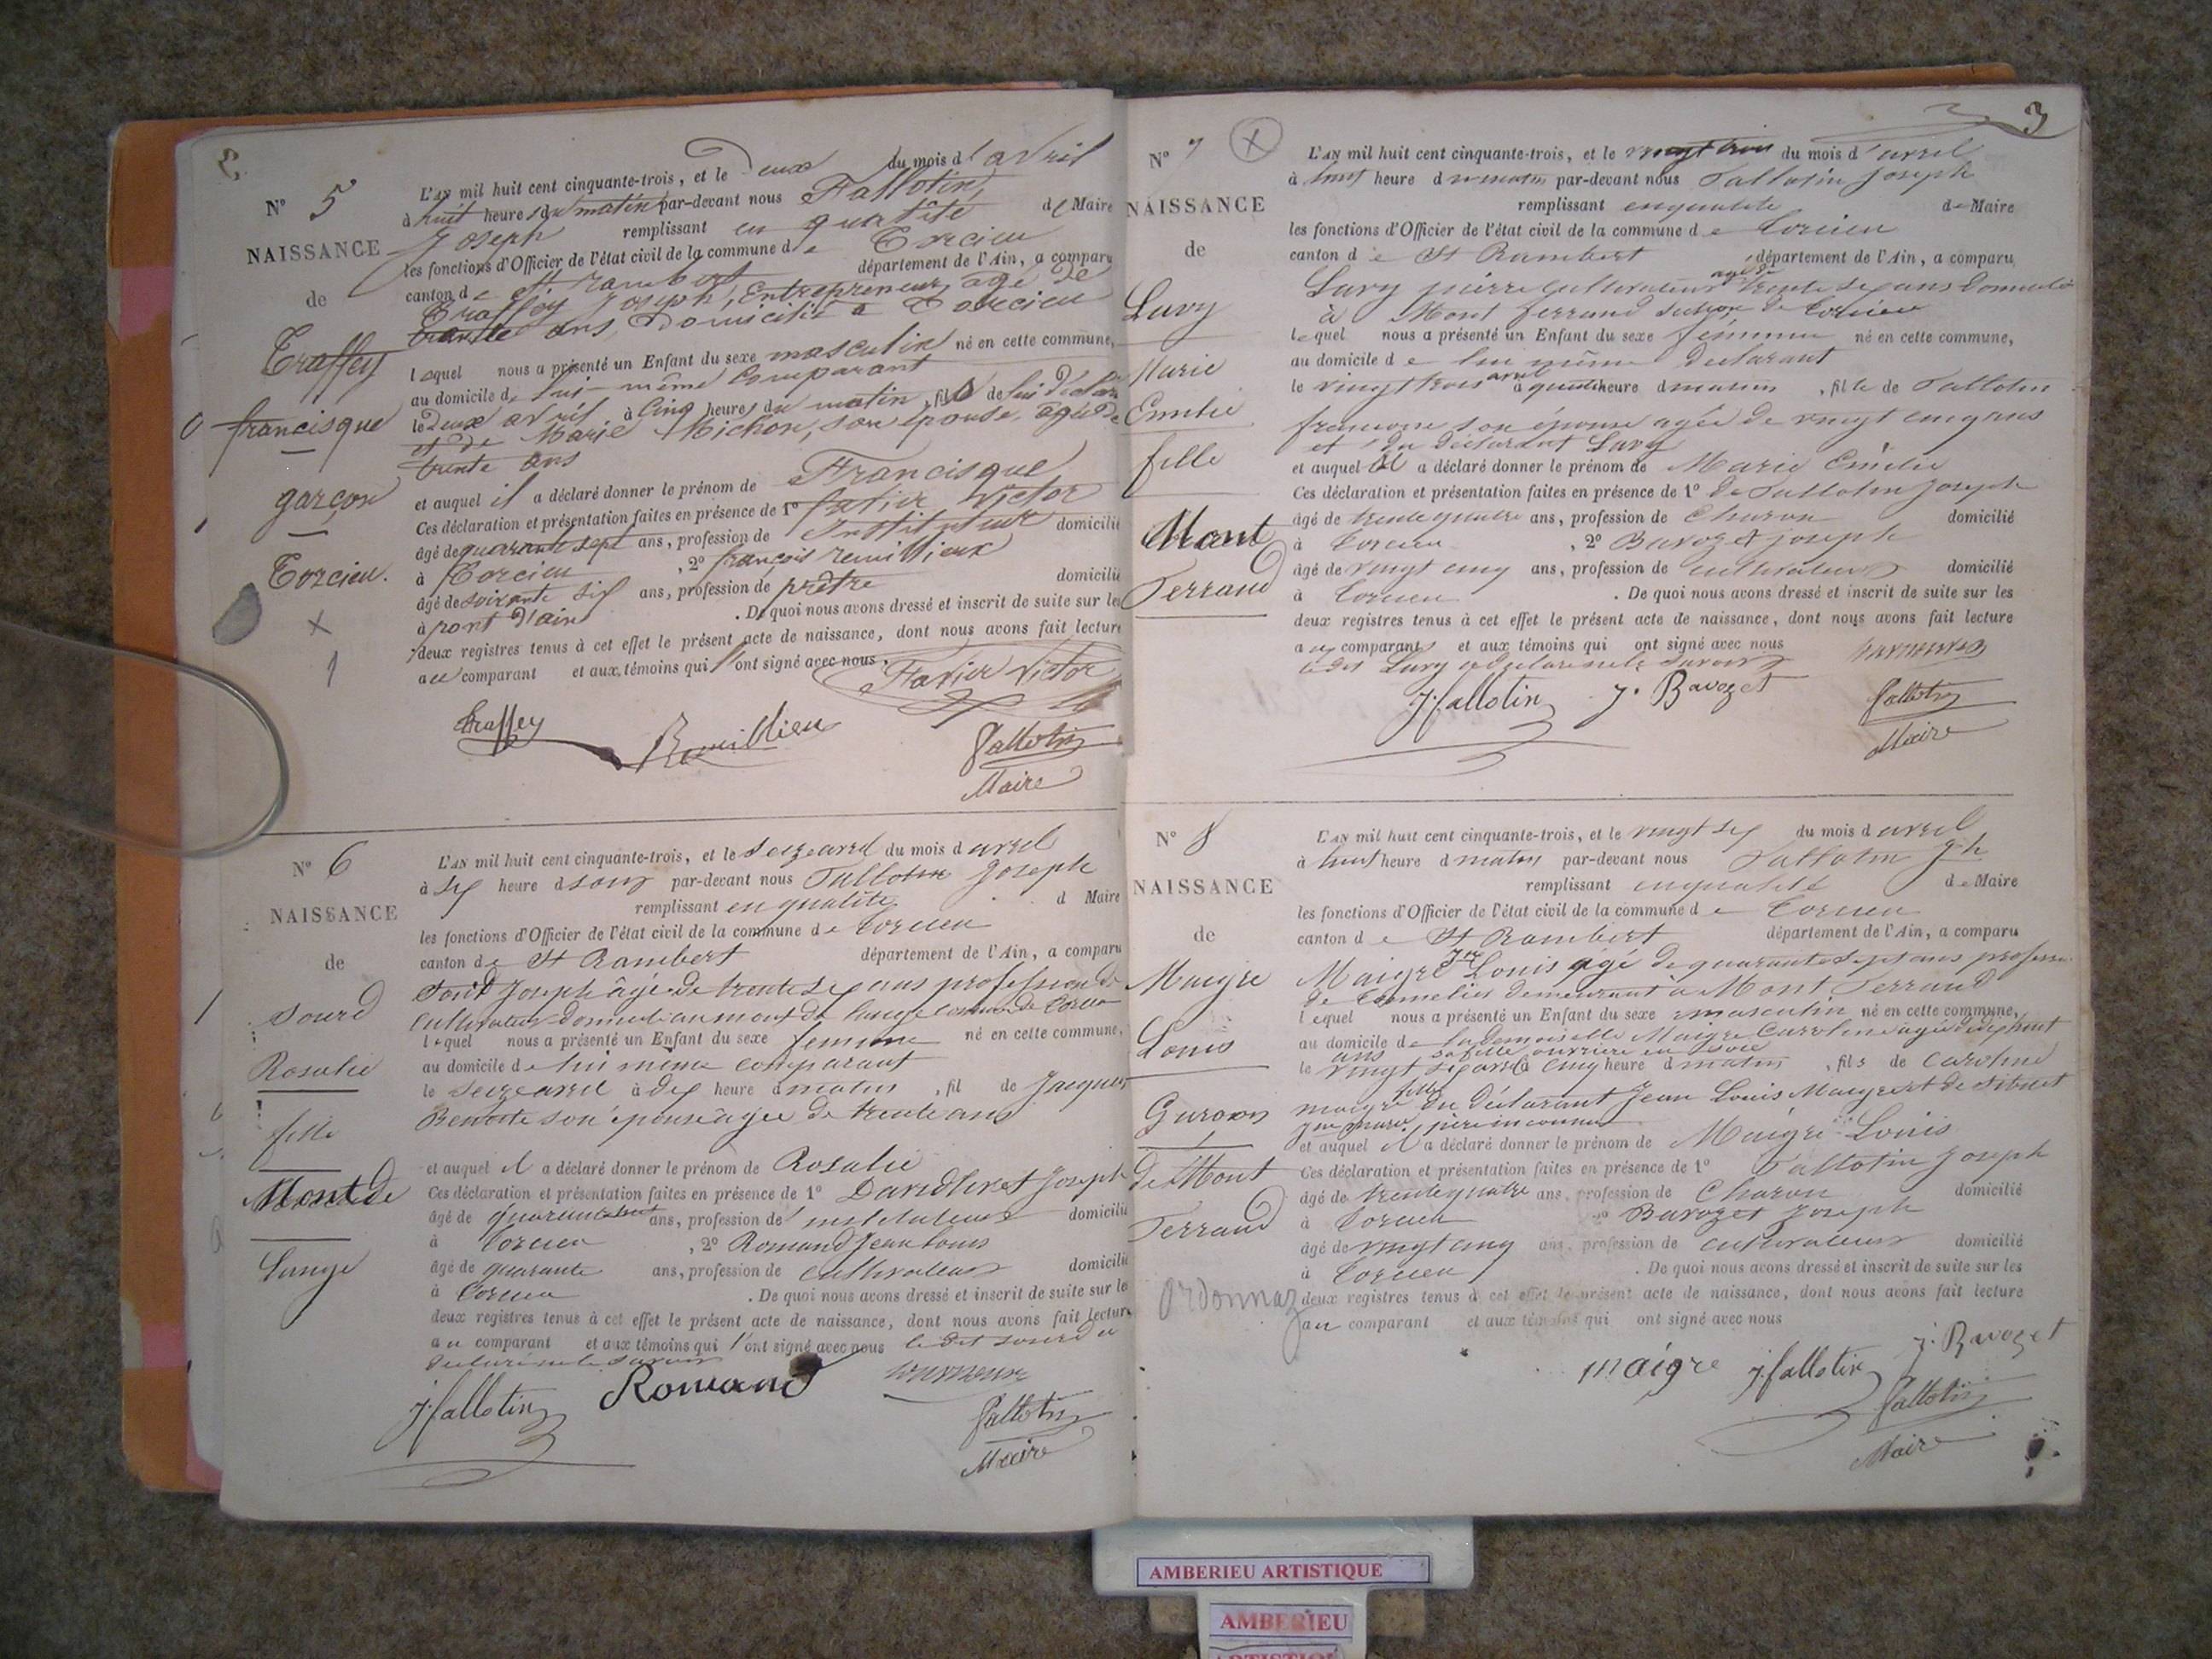 N° 5
NAISSANCE
de
Traffey
francisque
garçon
Torcieu.
L'AN mil huit cent cinquante-trois, et le Deux du mois d'avril
à huit heures du matin par-devant nous Fallotin
Joseph remplissant en qualité de Maire
les fonctions d'Officier de l'état civil de la commune de Torcieu
canton de St rambert département de l'Ain, a comparu
Traffey Joseph, Entrepreneur, agé de
trente ans, Domicilié a Torcieu
lequel nous a présenté un Enfant du sexe masculin né en cette commune,
au domicile de lui-même Comparant
le Deux avril à Cinq heures du matin, fils de lui déclarant
et de Marie Michon, son épouse, agée de
trente ans
et auquel il a déclaré donner le prénom de Francisque
Ces déclaration et présentation faites en présence de 1° favier Victor
âgé de quarante sept ans, profession de Instituteur domicilié
à Torcieu, 2° françois
âgé de soixante six ans, profession de prêtre domicilié
à pont d'ain. De quoi nous avons dressé et inscrit de suite sur les
deux registres tenus à cet effet le présent acte de naissance, dont nous avons fait lecture
au comparant et aux témoins qui l'ont signé avec nous.
Favier Victor
Traffey
fallotin
Maire
N° 6
NAISSANCE
de
Sourd
Rosalie
fille
Mont de
Lange
L'AN mil huit cent cinquante-trois, et le seize avril du mois d avril
à six heure d soir par-devant nous Fallotin Joseph
remplissant en qualité d Maire
les fonctions d'Officier de l'état civil de la commune de Torcieu
canton de St Rambert département de l'Ain, a comparu
Sourd Joseph âgé de trente six ans profession de
Cultivateur domicilié au mont de lange commune de Torcieu
lequel nous a présenté un Enfant du sexe féminin né en cette commune,
au domicile de lui même comparant
le seize avril à dix heure d matin, fil de Jacquet
Benoite son épouse âgée de trente ans
et auquel il a déclaré donner le prénom de Rosalie
Ces déclaration et présentation faites en présence de 1° Joseph
âgé de ans, profession de instituteur domicilié
à Torcieu, 2° Romand Jean Louis
âgé de quarante ans, profession de cultivateur domicilié
à Torcieu. De quoi nous avons dressé et inscrit de suite sur les
deux registres tenus à cet effet le présent acte de naissance, dont nous avons fait lecture
au comparant et aux témoins qui l'ont signé avec nous le dit sourd a
déclaré ne le savoir
J. fallotin Romand
fallotin
Maire
3
N° 7
NAISSANCE
de
Lavy
Marie
Emilie
fille
Mont
Ferrand
L'AN mil huit cent cinquante-trois, et le vingt trois du mois d'avril
à heure d matin par-devant nous Fallotin Joseph
remplissant en qualité de Maire
les fonctions d'Officier de l'état civil de la commune de Torcieu
canton de St Rambert département de l'Ain, a comparu
Lavy pierre Cultivateur agé de trente ans Domicilié
à Mont ferrand de Torcieu
lequel nous a présenté un Enfant du sexe féminin né en cette commune,
au domicile de lui même déclarant
le vingt trois avril à heure d matin, fille de Fallotin
françoise son épouse agée de vingt cinq ans
et du déclarant Lavy
et auquel il a déclaré donner le prénom de Marie Emilie
Ces déclaration et présentation faites en présence de 1° de Fallotin Joseph
âgé de trente quatre ans, profession de Charon domicilié
à Torcieu, 2° Bavozet joseph
âgé de vingt cinq ans, profession de cultivateur domicilié
à Torcieu. De quoi nous avons dressé et inscrit de suite sur les
deux registres tenus à cet effet le présent acte de naissance, dont nous avons fait lecture
au comparant et aux témoins qui ont signé avec nous
le dit Lavy a déclaré ne le savoir
J. fallotin J. Bavozet
fallotin
Maire
N° 8
NAISSANCE
de
Maigre
Louis
Garçon
de Mont
Ferrand
Ordonnaz
L'AN mil huit cent cinquante-trois, et le vingt six du mois d avril
à heure d matin par-devant nous Fallotin Jh
remplissant en qualité de Maire
les fonctions d'Officier de l'état civil de la commune de Torcieu
canton de St Rambert département de l'Ain, a comparu
Maigre Louis agé de quarante sept ans profession
de demeurant à Mont Ferrand
lequel nous a présenté un Enfant du sexe masculin né en cette commune,
au domicile de la demoiselle Maigre Caroline agée de dix huit
ans sa fille ouvrière en soie
le vingt six avril à cinq heure d matin, fils de Caroline
maigre fille du déclarant Jean Louis Maigre et de Sibuet
père inconnu
et auquel il a déclaré donner le prénom de Maigre Louis
Ces déclaration et présentation faites en présence de 1° Fallotin Joseph
âgé de trente quatre ans, profession de Charon domicilié
à Torcieu 2° Bavozet Joseph
âgé de vingt cinq ans, profession de cultivateur domicilié
à Torcieu. De quoi nous avons dressé et inscrit de suite sur les
deux registres tenus à cet effet le présent acte de naissance, dont nous avons fait lecture
au comparant et aux témoins qui ont signé avec nous
maigre J. fallotin J. Bavozet
fallotin
Maire
AMBERIEU ARTISTIQUE
AMBERIEU
ARTISTIQUE